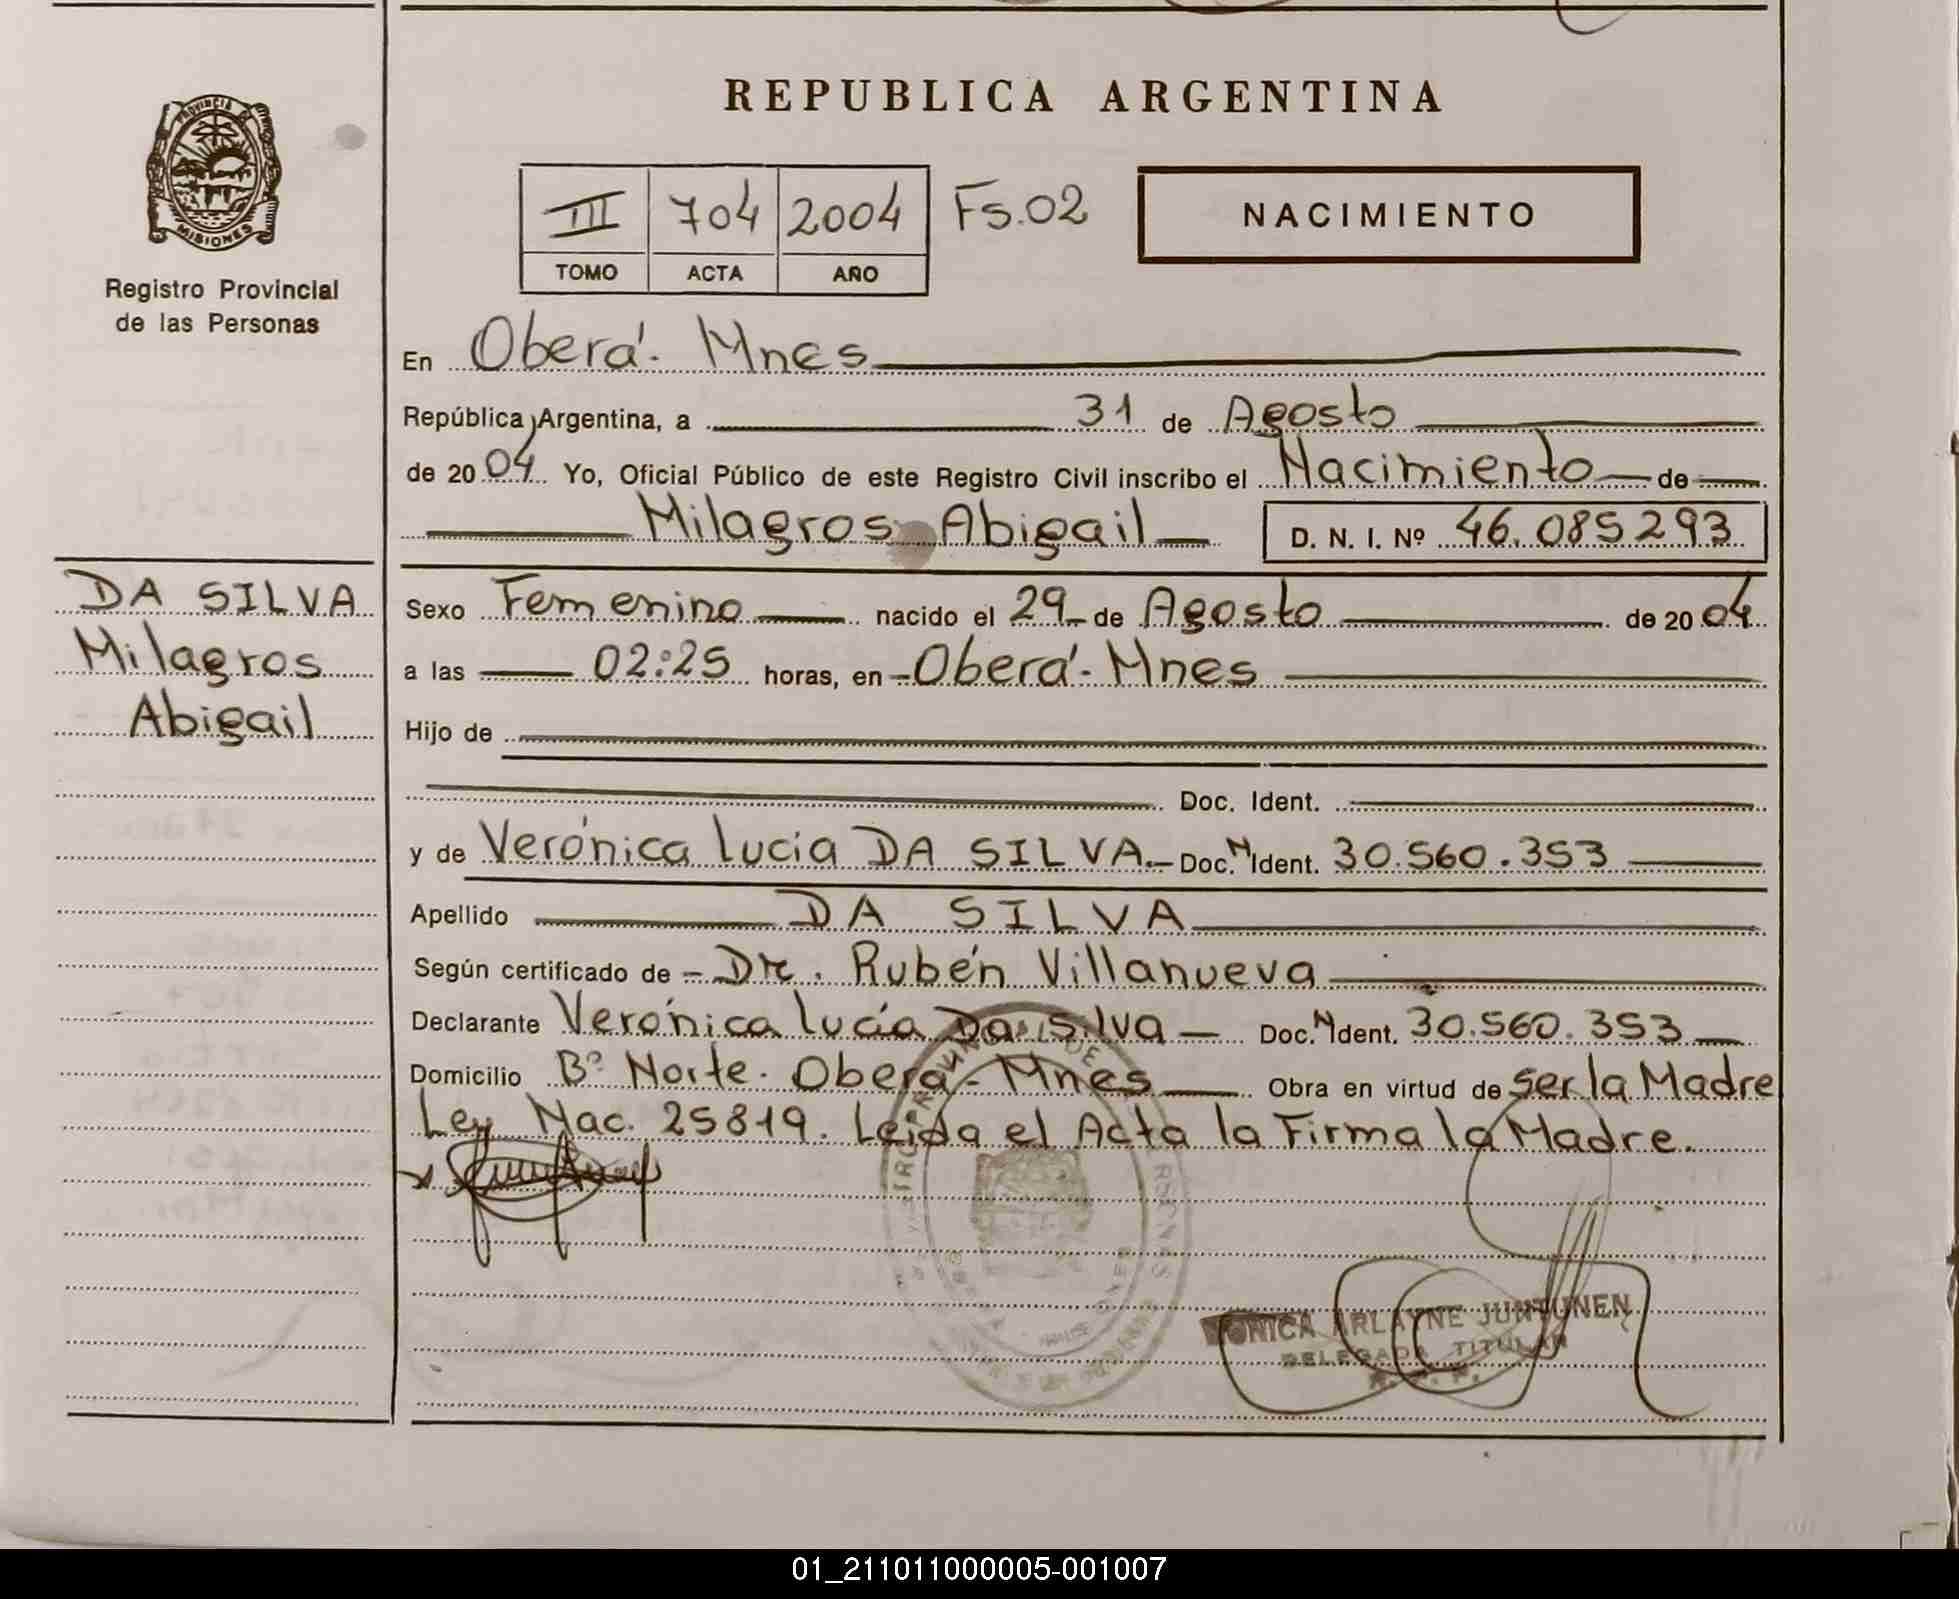 REPUBLICA ARGENTINA
PROVINCIA DE
MISIONES
Registro Provincial
de las Personas
III 704 2004 Fs.02
TOMO ACTA AÑO
NACIMIENTO
En Oberá. Mnes
República Argentina, a 31 de Agosto
de 2004 Yo, Oficial Público de este Registro Civil inscribo el Nacimiento de
Milagros Abigail D. N. I. Nº 46.085293
DA SILVA
Milagros
Abigail
Sexo Femenino nacido el 29 de Agosto de 2004
a las 02:25 horas, en Oberá. Mnes
Hijo de
Doc. Ident.
y de Verónica Lucia DA SILVA. Doc. N Ident. 30.560.353
Apellido DA SILVA
Según certificado de Dr. Rubén Villanueva
Declarante Verónica Lucía Da Silva Doc. N Ident. 30.560.353
Domicilio Bº Norte. Oberá. Mnes Obra en virtud de ser la Madre
Ley Nac. 25819. Leida el Acta la Firma la Madre.
ARLAYNE JUNTUNEN
DELEGADA TITULAR
01_211011000005-001007